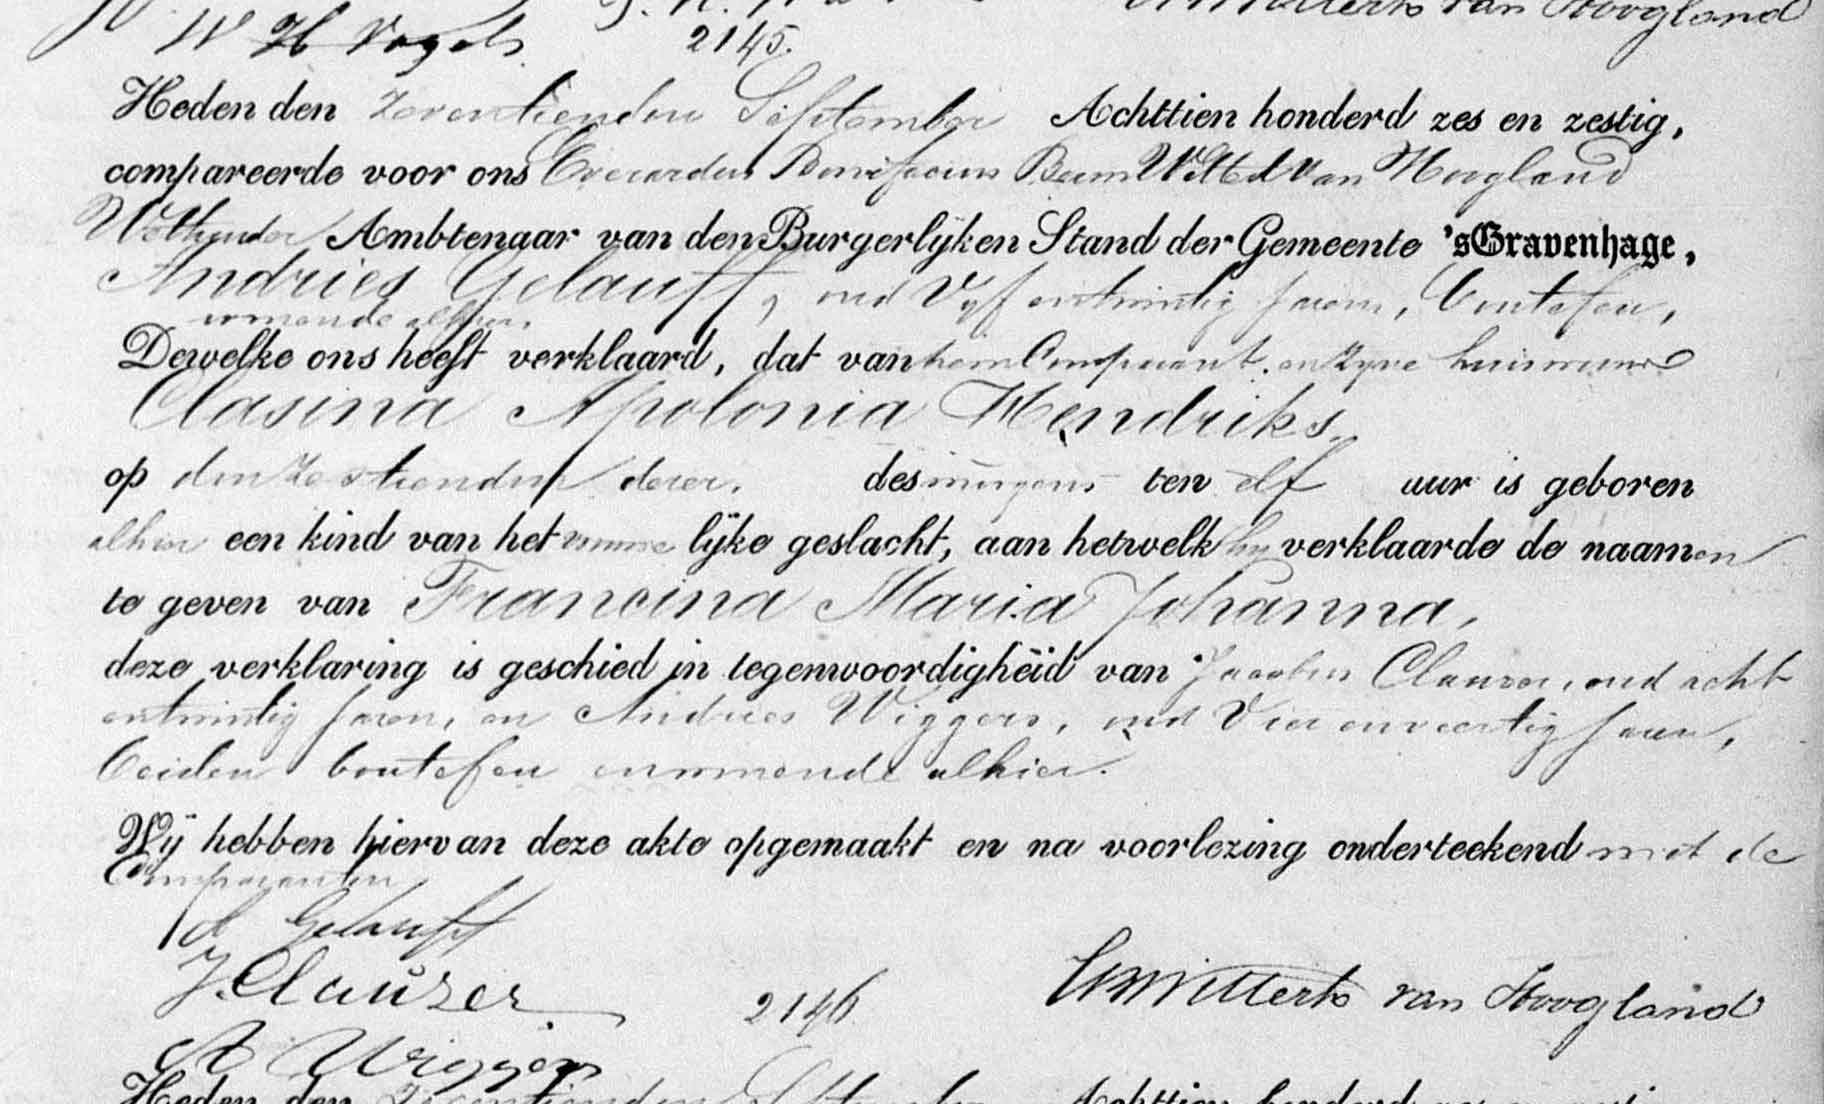 W H Vogels
van Hoogland
2145.
Heden den zeventienden September Achttien honderd zes en zestig,
compareerde voor ons Everardus Bonifacius van Hoogland
Wethouder Ambtenaar van den Burgerlijken Stand der Gemeente 'sGravenhage,
Andries Gelauff, oud Vyf entwintig Jaren,
wonende alhier,
Dewelke ons heeft verklaard, dat van hem Comparant en zyne huisvrouw
Clasina Apolonia Hendriks
op den zestienden dezer, des morgens ten elf uur is geboren
alhier een kind van het vrouwelijke geslacht, aan hetwelk hy verklaarde de naamen
te geven van Francina Maria Johanna,
deze verklaring is geschied in tegenwoordigheid van Jacobus Clauzer, oud acht
entwintig Jaren, en Andries Wiggers, oud Vier enveertig Jaren,
beiden wonende alhier.
Wij hebben hiervan deze akte opgemaakt en na voorlezing onderteekend met de
Comparanten
A Gelauff
J. Clauzer
2146
Witterts van Hoogland
A Wiggers
Heden den Zeventienden September Achttien honderd zes en zestig